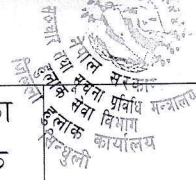 नेपाल सरकार
सञ्चार तथा सूचना प्रविधि मन्त्रालय
हुलाक सेवा विभाग
जिल्ला हुलाक कार्यालय
सिन्धुली